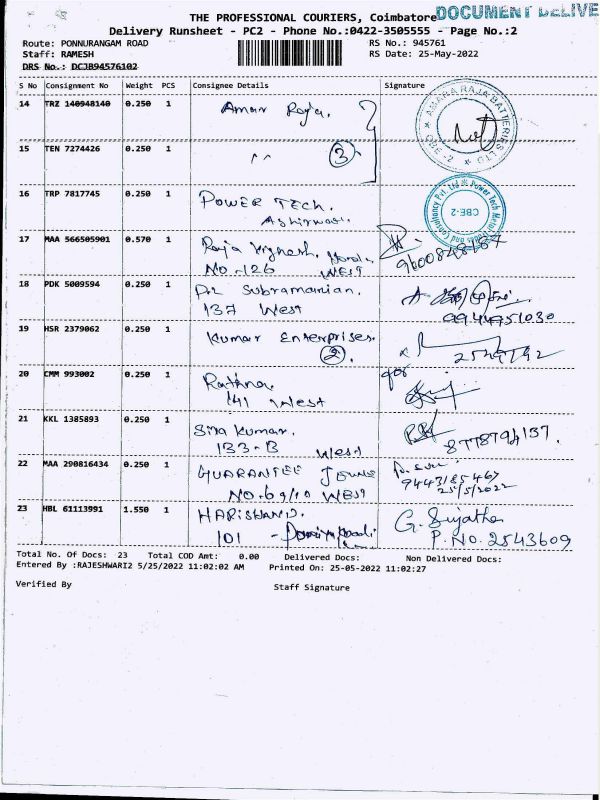 THE PROFESSIONAL COURIERS, Coimbatore
DOCUMENT DELIVE
Delivery Runsheet - PC2 - Phone No.:0422-3505555 - Page No.:2
Route: PONNURANGAM ROAD
RS No.: 945761
Staff: RAMESH
RS Date: 25-May-2022
DRS No.: DCJB94576102
S No Consignment No Weight PCS Consignee Details Signature
14 TRZ 140948140 0.250 1 Amar Raja.
AMARA RAJA BATTERIES LTD
CBE-2
15 TEN 7274426 0.250 1 " 3
16 TRP 7817745 0.250 1 POWER TECH.
CBE-2
17 MAA 566505901 0.570 1 Raja Vignesh.
NO.-126 WEST
18 PDK 5009594 0.250 1 Subramanian.
137 West
19 HSR 2379062 0.250 1 Kumar Enterprises.
2.
20 CMM 993002 0.250 1 Rathna
141 West
21 KKL 1385893 0.250 1 Siva Kumar.
133-B West
22 MAA 290816434 0.250 1 GUARANTEE
NO.69/10 WEST
25/5/2022
23 HBL 61113991 1.550 1 G. Sujatha
101 P.NO. 2543609
Total No. Of Docs: 23 Total COD Amt: 0.00 Delivered Docs: Non Delivered Docs:
Entered By :RAJESHWARI2 5/25/2022 11:02:02 AM Printed On: 25-05-2022 11:02:27
Verified By Staff Signature